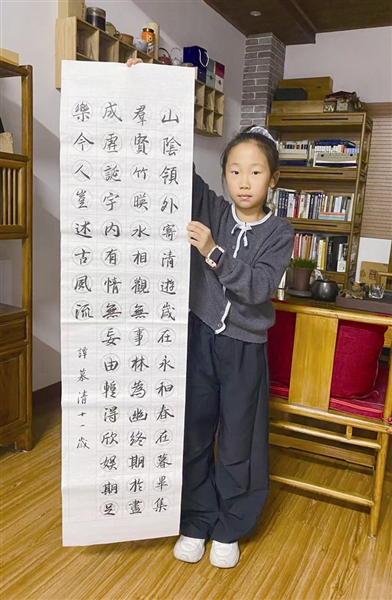 山陰領外寄清遊歲在永和春在暮畢集
羣賢竹暎水相觀無事林為幽終期於盡
成虛誕宇内有情無妄由輕得欣娛期足
樂今人豈述古風流
譚慕清十一歲